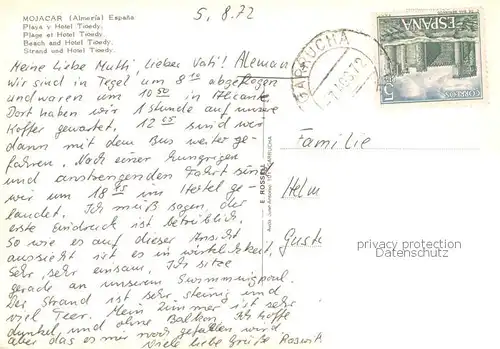 MOJACAR (Almería) España
Playa y Hotel Tioedy.
Plage et Hotel Tioedy.
Beach and Hotel Tioedy.
Strand und Hotel Tioedy.
5.8.72
Meine liebe Mutti, lieber Vati! Aleman
Wir sind in Tegel um 8 10 abgeflogen
und waren um 10 50 in Alicante.
Dort haben wir 1 Stunde auf unsere
Koffer gewartet. 12 05 sind wir
dann mit dem Bus weiter ge-
fahren. Nach einer hungrigen
und anstrengenden Fahrt sind
wir um 18 45 im Hotel ge-
landet. Ich muß sagen, der
erste Eindruck ist betrüblich.
So wie es auf dieser Ansicht
aussieht ist es in wirklichkeit,
sehr, sehr einsam. Ich sitze
gerade an unserem Swimmingpool.
Der Strand ist sehr steinig und
viel Teer. Mein Zimmer ist sehr
dunkel und ohne Balkon. Ich hoffe
aber das es mir noch gefallen wird
Viele liebe Grüße
GARRUCHA
ESPAÑA
CORREOS
5
Familie
Helm
Guste
E. ROSSEL
privacy protection
Datenschutz